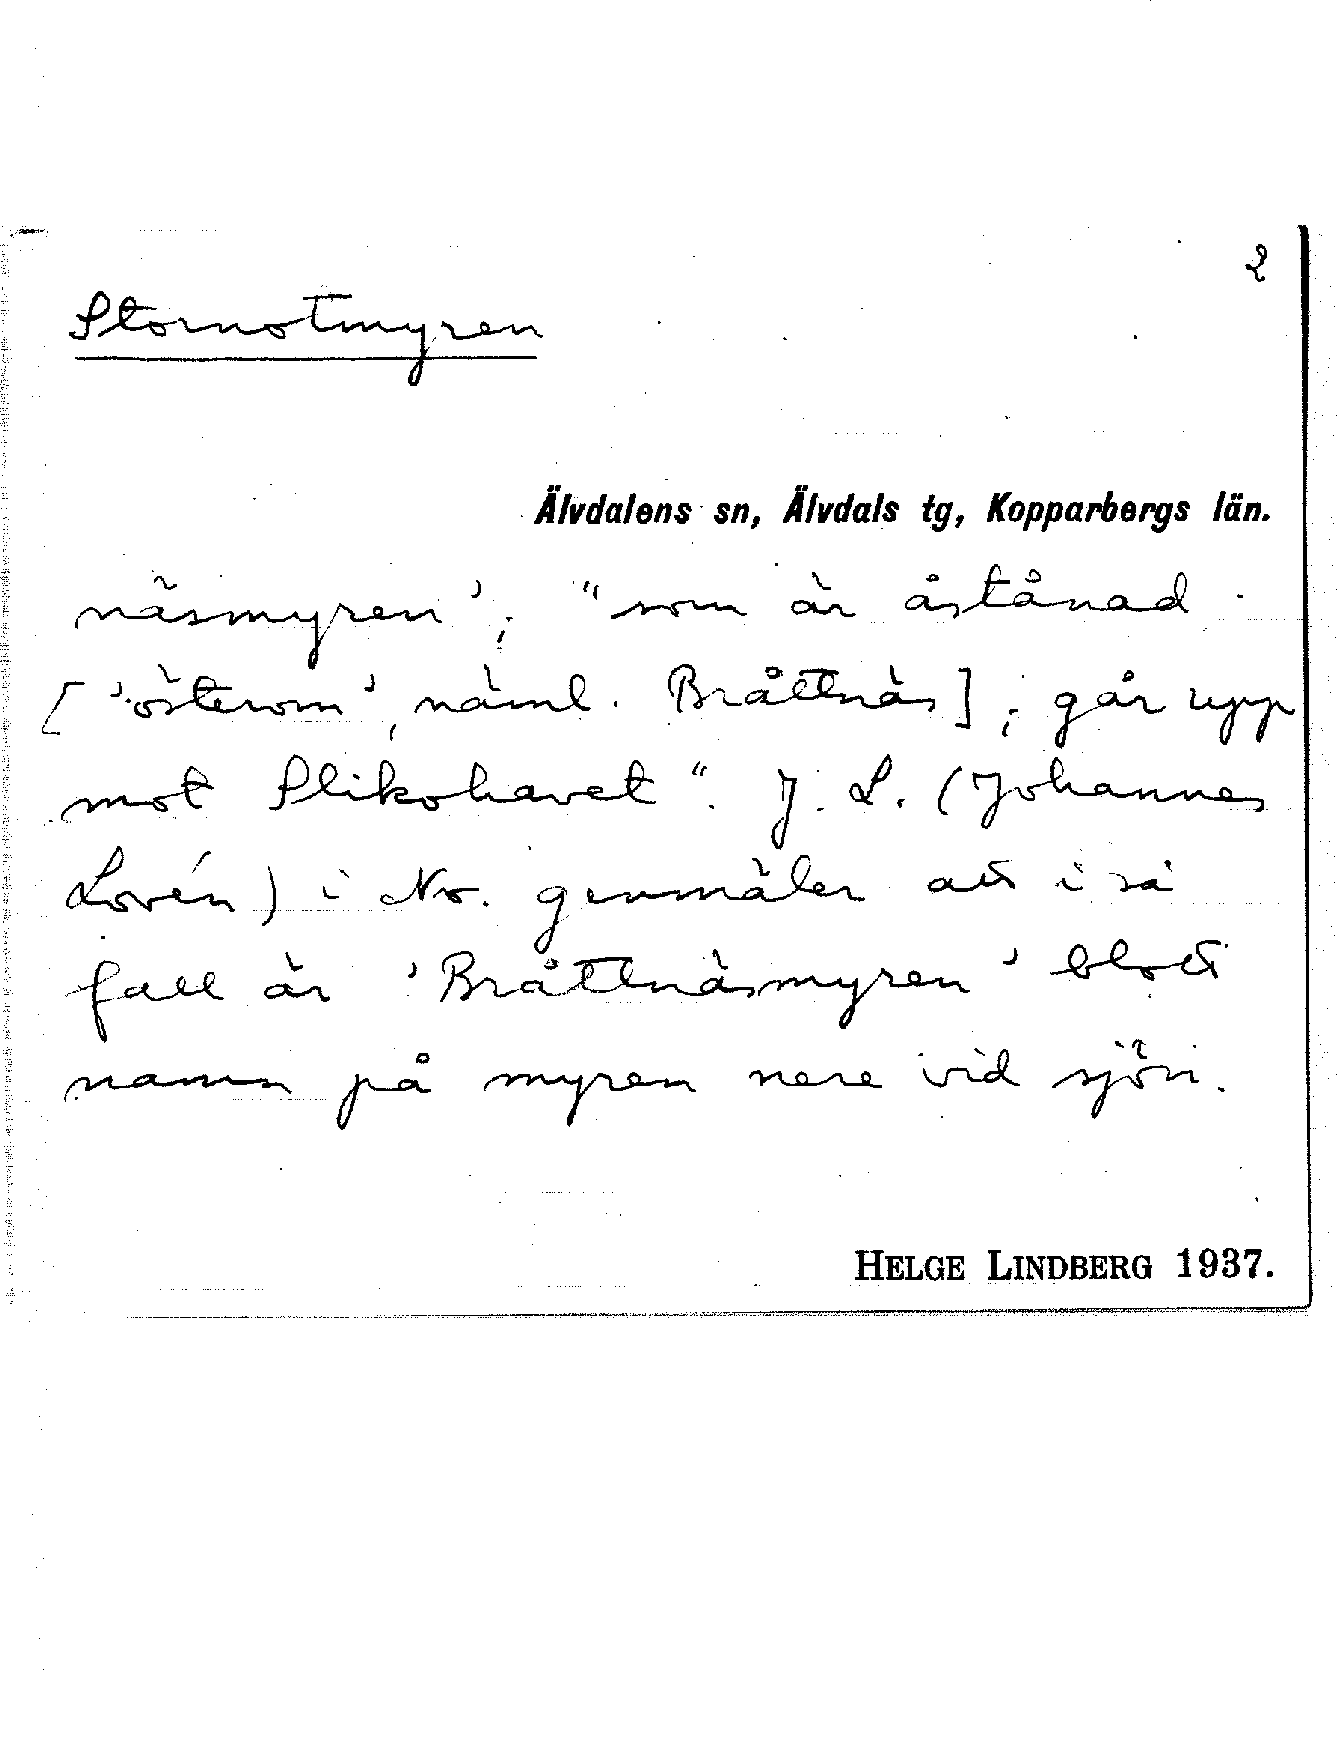 2
Stornotmyren
Älvdalens sn, Älvdals tg, Kopparbergs län.
näsmyren'; "som är åstånad
['österom', näml. Bråttnäs]; går upp
mot Slikohavet". J. L. (Johannes
Lorén) i No. genmäler att i så
fall är 'Bråttnäsmyren' blott
namn på myren nere vid sjön.
HELGE LINDBERG 1937.